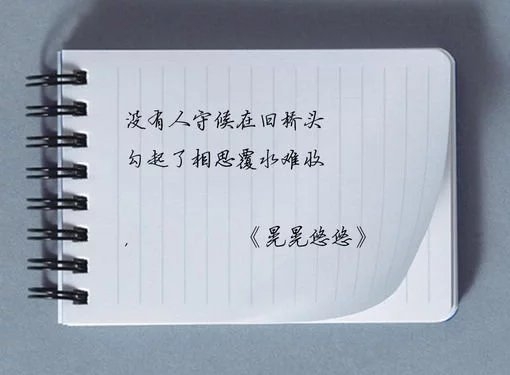 没有人守候在旧桥头
勾起了相思覆水难收
. 《晃晃悠悠》